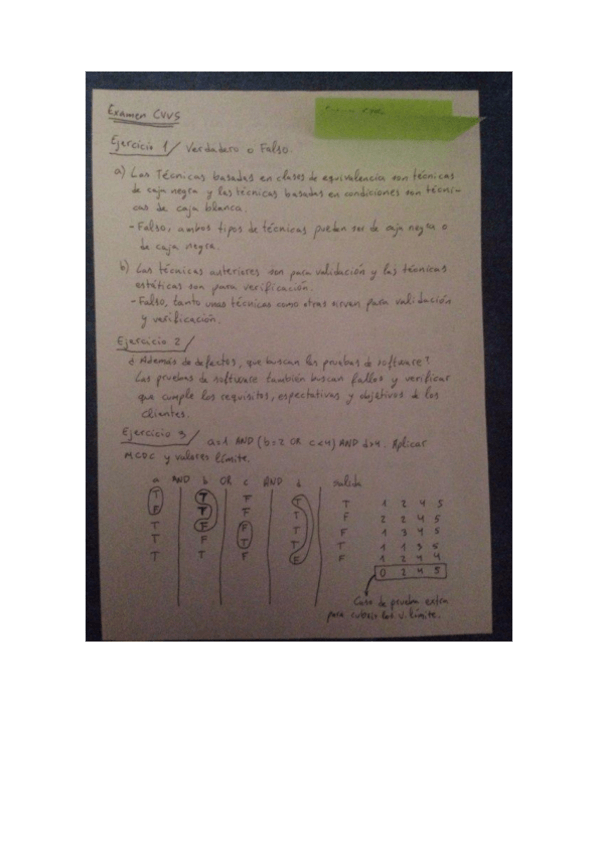 Examen CVVS
Ejercicio 1/ Verdadero o Falso.
a) Las Técnicas basadas en clases de equivalencia son técnicas
de caja negra y las técnicas basadas en condiciones son técni-
cas de caja blanca.
- Falso, ambos tipos de técnicas pueden ser de caja negra o
de caja negra.
b) Las técnicas anteriores son para validación y las técnicas
estáticas son para verificación.
- Falso, tanto unas técnicas como otras sirven para validación
y verificación.
Ejercicio 2/
¿Además de defectos, que buscan las pruebas de software?
Las pruebas de software también buscan fallos y verificar
que cumple los requisitos, espectativas y objetivos de los
clientes.
Ejercicio 3/ a=1 AND (b=2 OR c<4) AND d>4. Aplicar
MCDC y valores límite.
a AND b OR c AND d salida
T T F T T 1 2 4 5
F T F T F 2 2 4 5
T F F T F 1 3 4 5
T F T T T 1 1 3 5
T T F F F 1 2 4 4
0 2 4 5
Caso de prueba extra
para cubrir los v. límite.